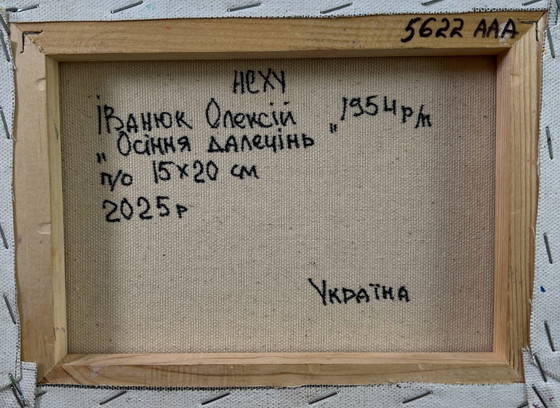 5622 AAA
НСХУ
Іванюк Олексій 1954 р/н
„Осіння далечінь"
п/о 15х20 см
2025р
Україна